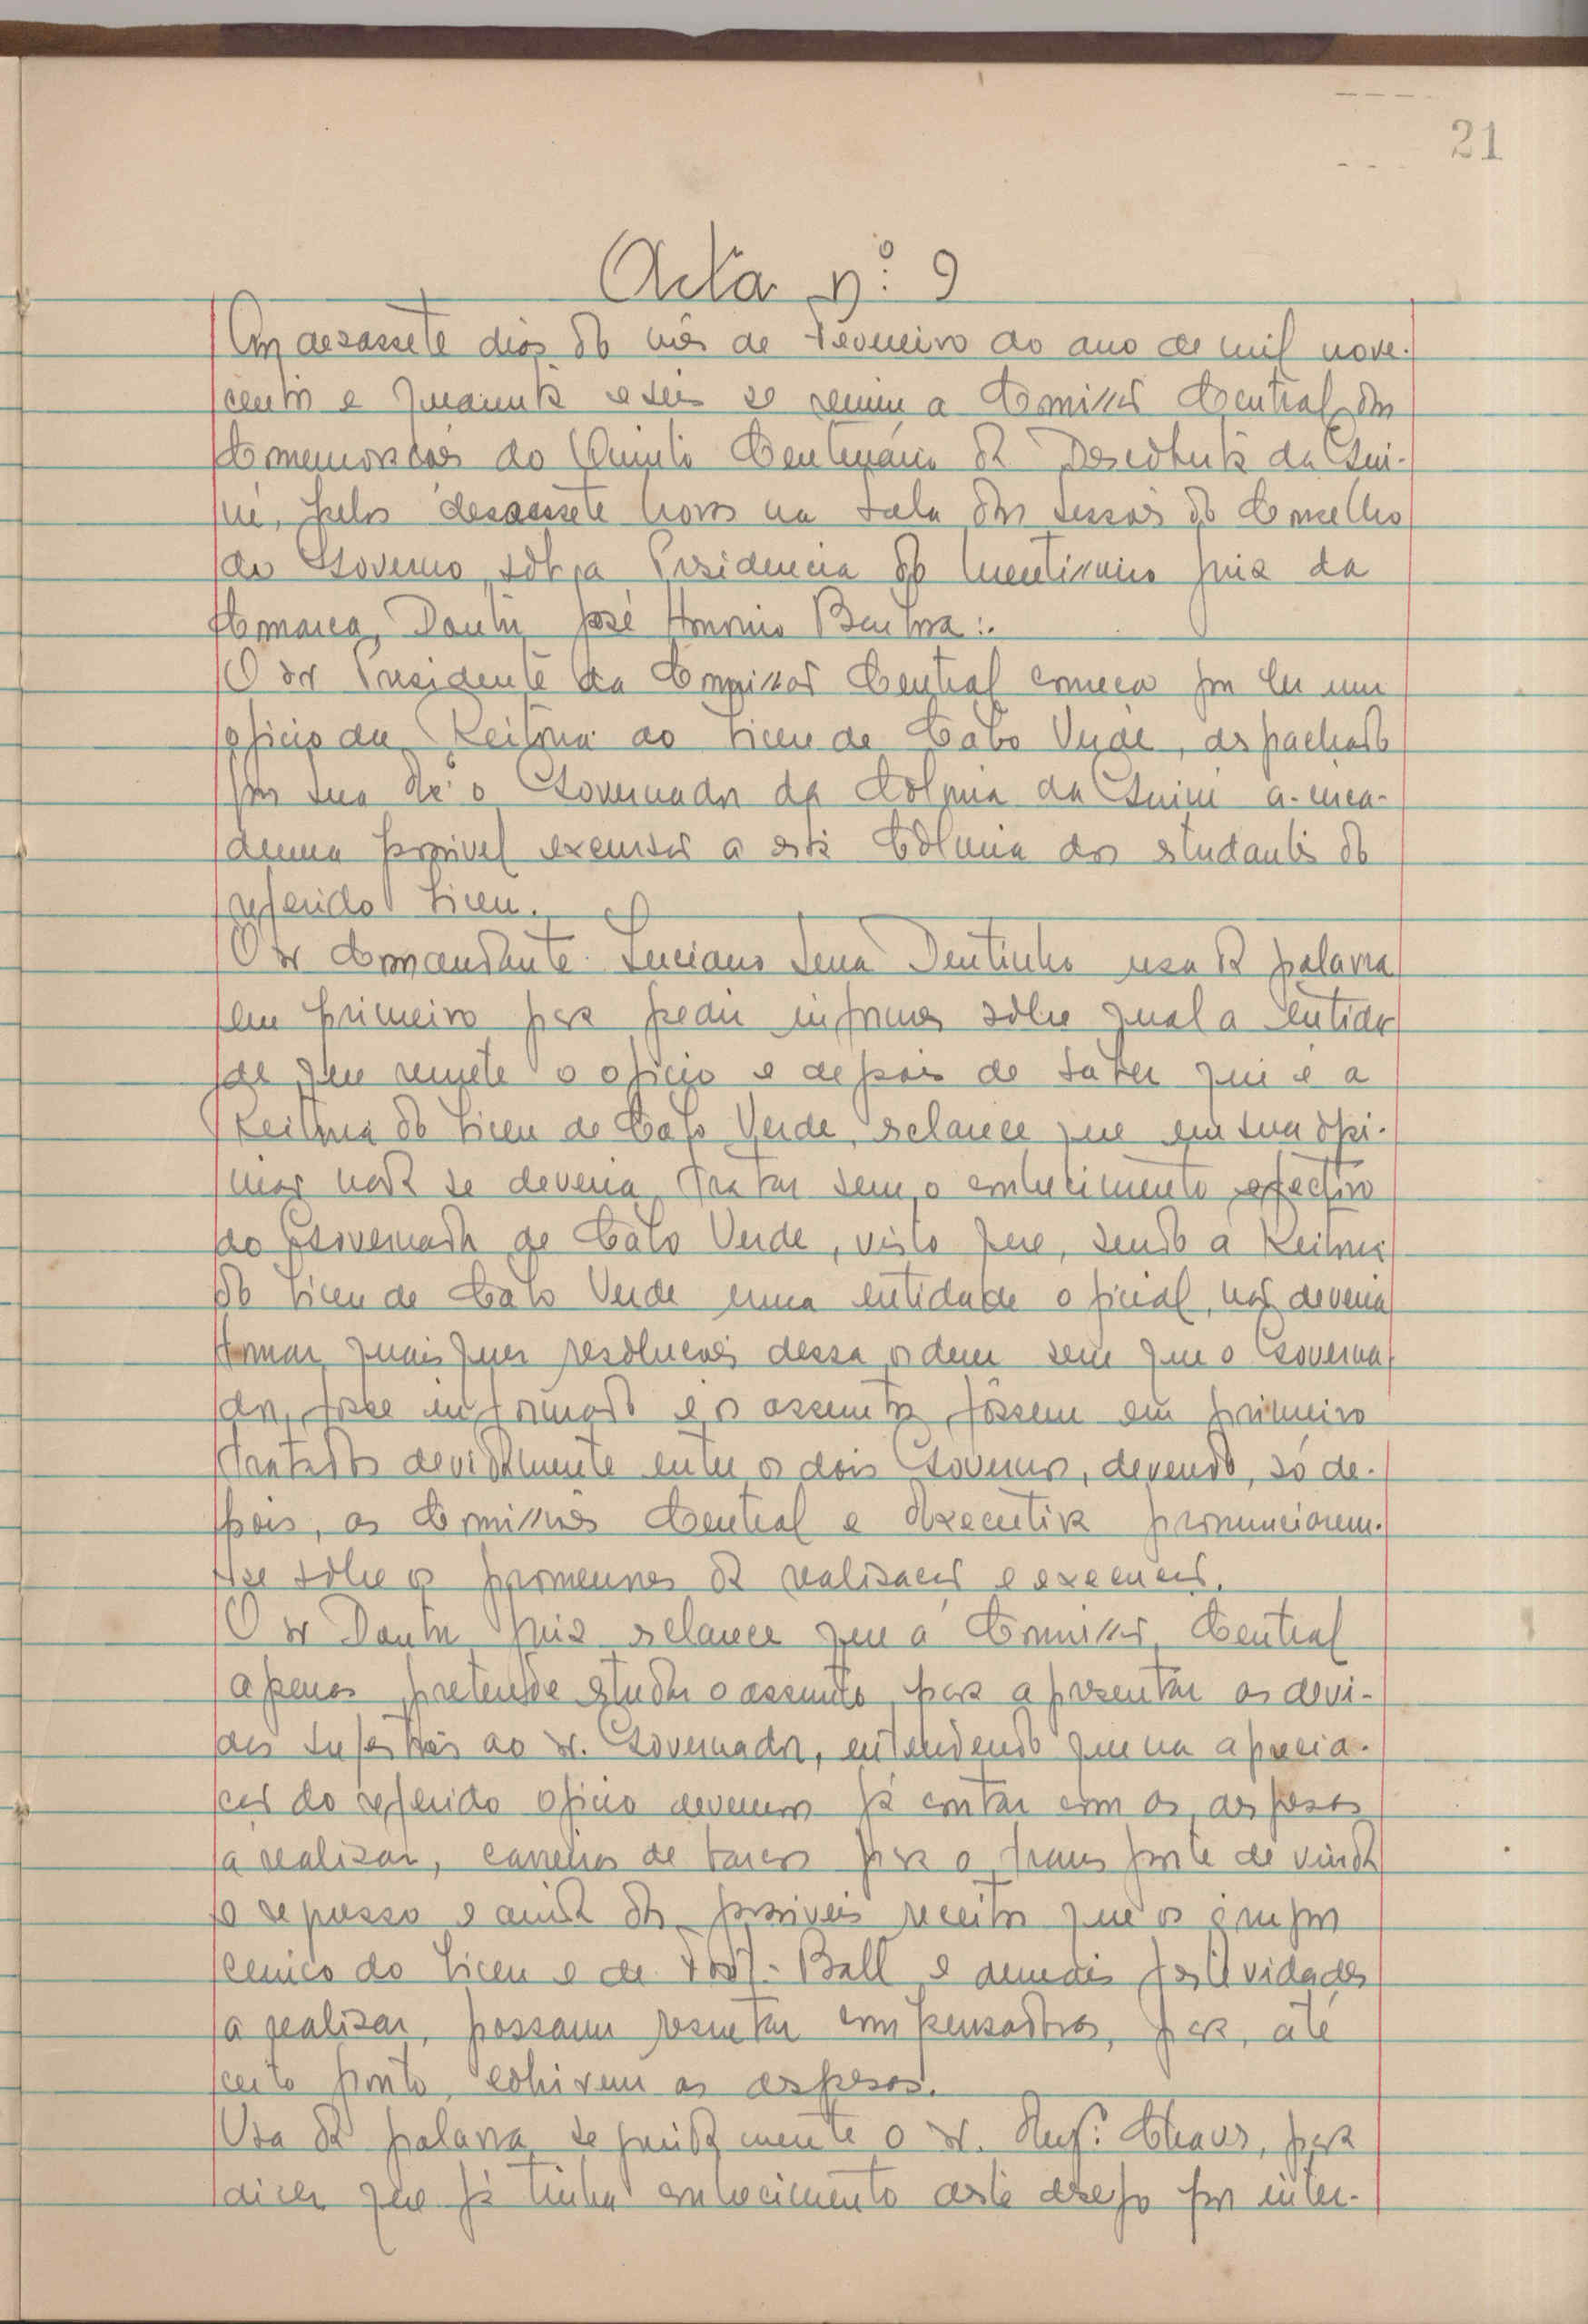 21
Acta nº 9
Aos dezassete dias do mês de Fevereiro do ano de mil nove-
centos e quarenta e seis se reuniu a Comissão Central das
Comemorações do Quinto Centenário da Descoberta da Gui-
né, pelas dezassete horas na sala das sessões do Conselho
do Governo, sob a Presidencia do Meritissimo juiz da
Comarca, Doutor José Barbosa:.
O sr Presidente da Comissão Central começa por ler um
oficio da Reitoria do Liceu de Cabo Verde, despachado
por Sua Exª o Governador da Colónia da Guiné àcerca
duma possivel excursão a esta Colónia dos estudantes do
referido Liceu.
O sr Comandante Luciano Sena Dentinho usa da palavra
em primeiro para pedir informes sôbre qual a entida-
de que remete o oficio e depois de saber que é a
Reitoria do Liceu de Cabo Verde, esclarece que em sua opi-
nião nada se deveria tratar sem o conhecimento efectivo
do Governador de Cabo Verde, visto que, sendo a Reitoria
do Liceu de Cabo Verde uma entidade oficial, não deveria
tomar quaisquer resoluções dessa ordem sem que o Governa-
dor fôsse informado e os assuntos fôssem em primeiro
tratados devidamente entre os dois Governos, devendo, só de-
pois, as Comissões Central e Executiva pronunciarem-
se sôbre os pormenores da realisação e execução.
O sr Doutor juiz esclarece que a Comissão Central
apenas pretende estudar o assunto para apresentar as devi-
das sugestões ao sr. Governador, entendendo que na aprecia-
ção do referido oficio devemos já contar com as despesas
a realisar, carreiras de barcos para o transporte de vinda
e regresso e ainda das possiveis receitas que os grupos
cenico do Liceu e de Foot-Ball e demais festividades
a realisar, possam resultar compensadoras, para, até
certo ponto, cobrirem as despesas.
Usa da palavra seguidamente o sr. Engº Chaves, para
dizer que já tinha conhecimento deste desejo por inter-